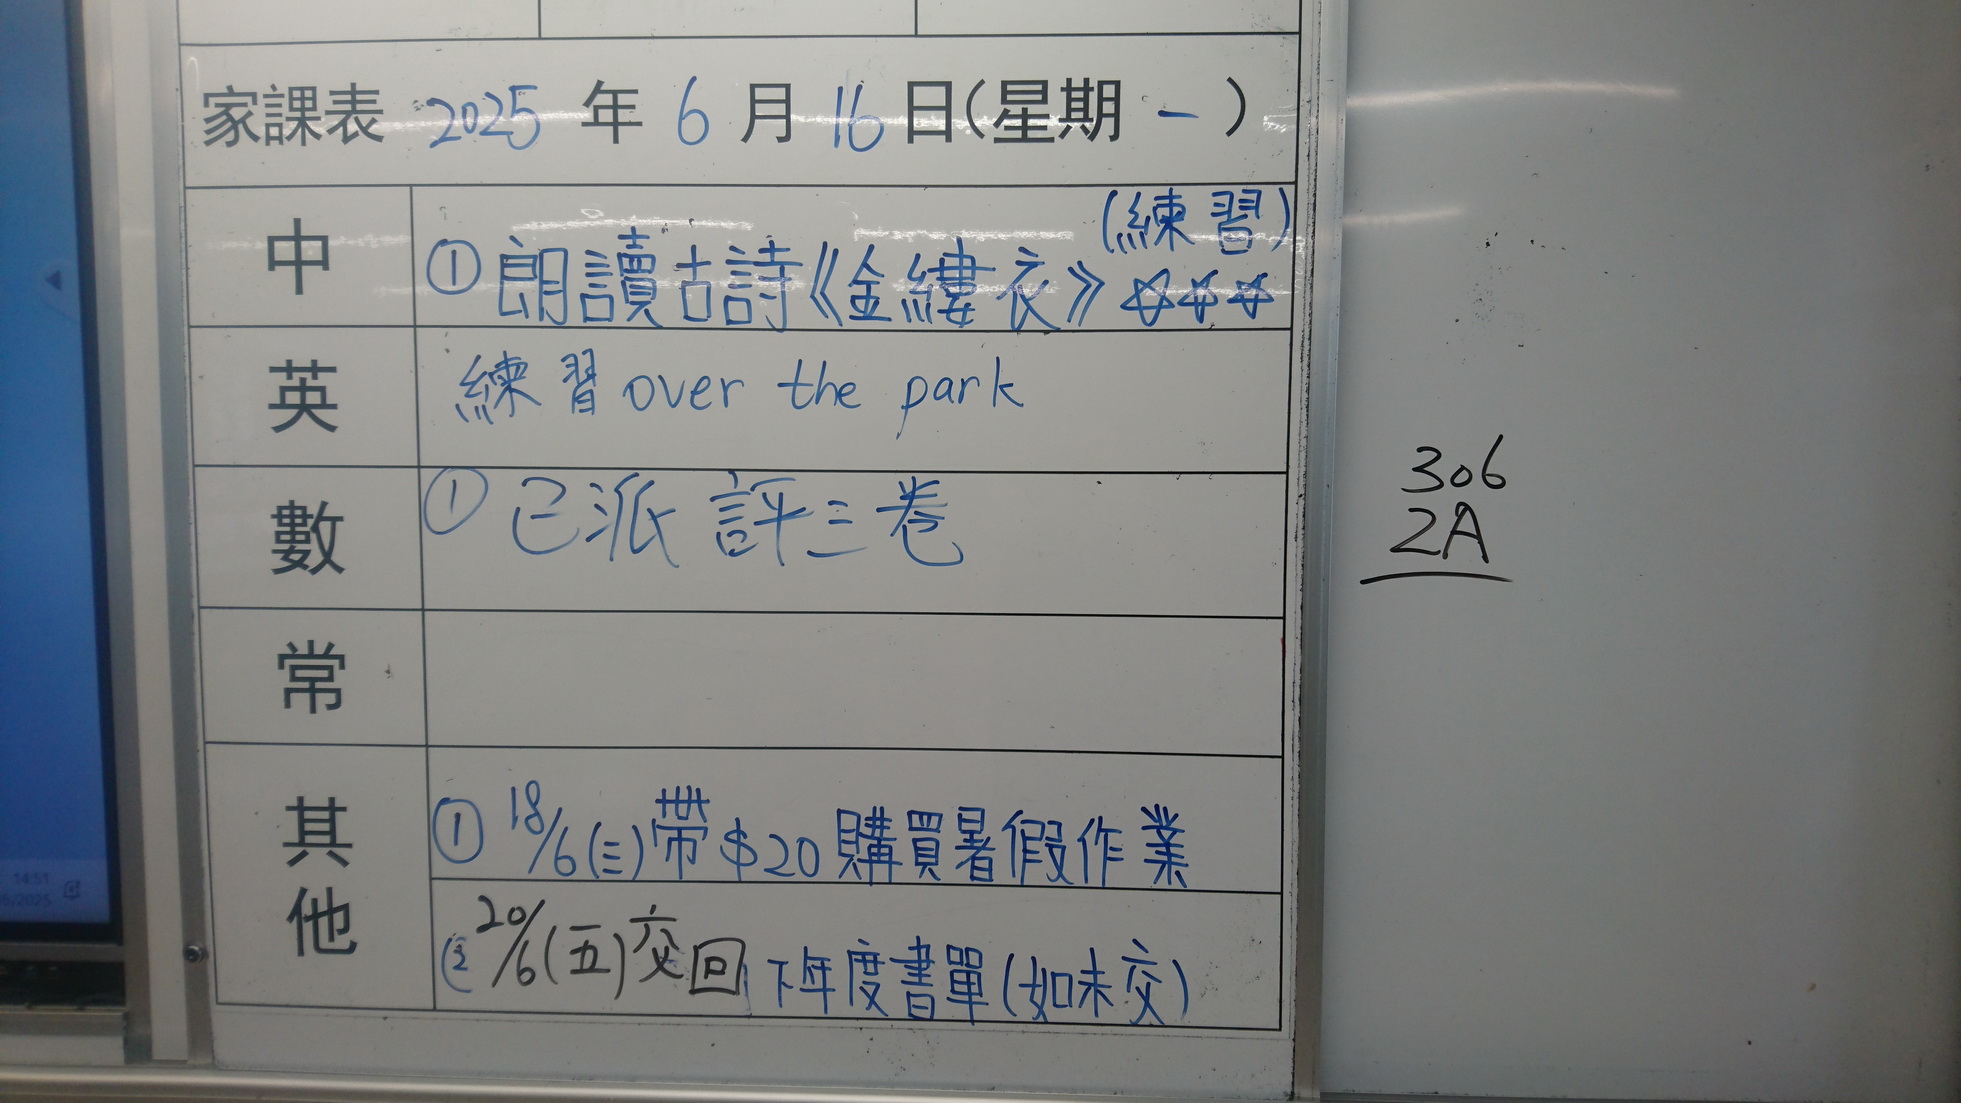 家課表 2025 年 6 月 16 日(星期 一 )
中 ① 朗讀古詩《金縷衣》☆☆☆ (練習)
英 練習 over the park
數 ① 已派 評三卷
常
其他 ① 18/6(三)帶$20購買暑假作業
② 20/6(五)交回 下年度書單(如未交)
306
2A
14:51